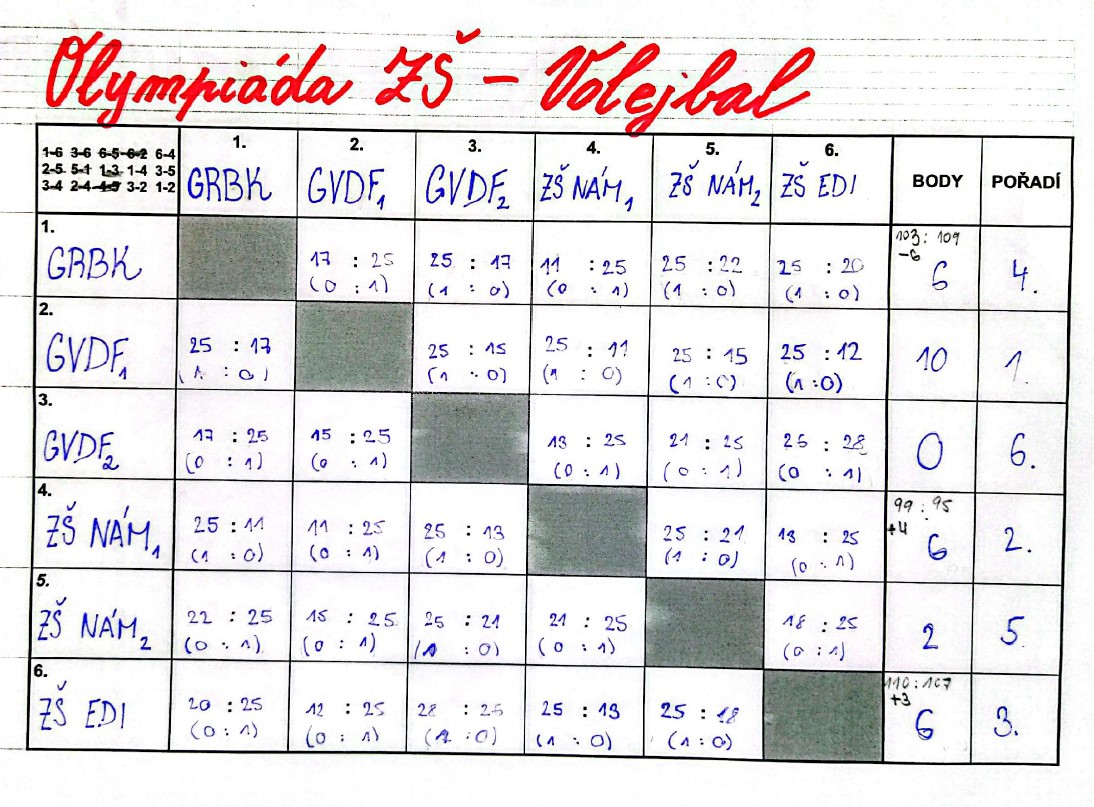 Olympiáda ZŠ - Volejbal
1-6 3-6 6-5 6-2 6-4
2-5 5-1 1-3 1-4 3-5
3-4 2-4 4-5 3-2 1-2
1. GRBK
2. GVDF1
3. GVDF2
4. ZŠ NÁM1
5. ZŠ NÁM2
6. ZŠ EDI
BODY
POŘADÍ
1. GRBK
17 : 25 (0 : 1)
25 : 17 (1 : 0)
11 : 25 (0 : 1)
25 : 22 (1 : 0)
25 : 20 (1 : 0)
103 : 109
-6
6
4.
2. GVDF1
25 : 17 (1 : 0)
25 : 15 (1 : 0)
25 : 11 (1 : 0)
25 : 15 (1 : 0)
25 : 12 (1 : 0)
10
1.
3. GVDF2
17 : 25 (0 : 1)
15 : 25 (0 : 1)
13 : 25 (0 : 1)
21 : 25 (0 : 1)
26 : 28 (0 : 1)
0
6.
4. ZŠ NÁM1
25 : 11 (1 : 0)
11 : 25 (0 : 1)
25 : 13 (1 : 0)
25 : 21 (1 : 0)
13 : 25 (0 : 1)
99 : 95
+4
6
2.
5. ZŠ NÁM2
22 : 25 (0 : 1)
15 : 25 (0 : 1)
25 : 21 (1 : 0)
21 : 25 (0 : 1)
18 : 25 (0 : 1)
2
5.
6. ZŠ EDI
20 : 25 (0 : 1)
12 : 25 (0 : 1)
28 : 26 (1 : 0)
25 : 13 (1 : 0)
25 : 18 (1 : 0)
110 : 107
+3
6
3.